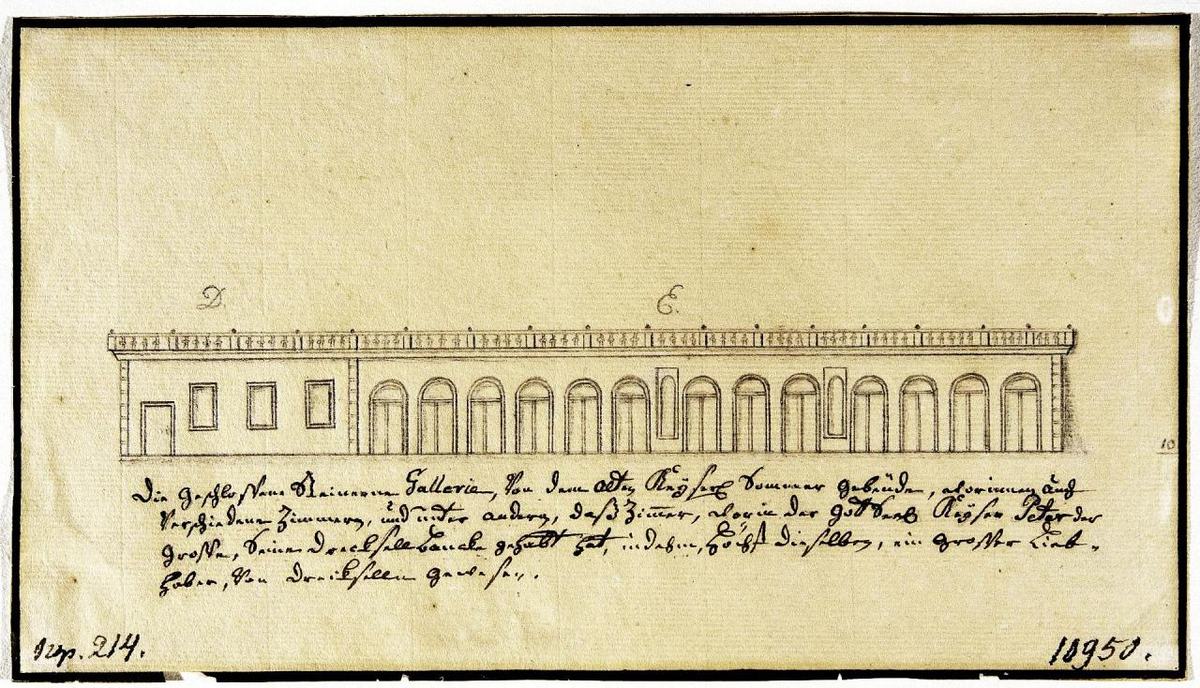 D. E.
10
Die Geschlossene Steinerne Gallerie, Von dem alten Keyserl Sommer Gebeude, worinnen auch
Verschiedene Zimmern, und unter andern, daß Zimmer, worin der Gott Seel Keyser Peter der
Grosse, Seine Drecksell Bancke gehabt hat, indehm, Höchst dieselben, ein grosser Lieb-
haber, Von Dreckselln gewesen.
стр. 214. 10950.